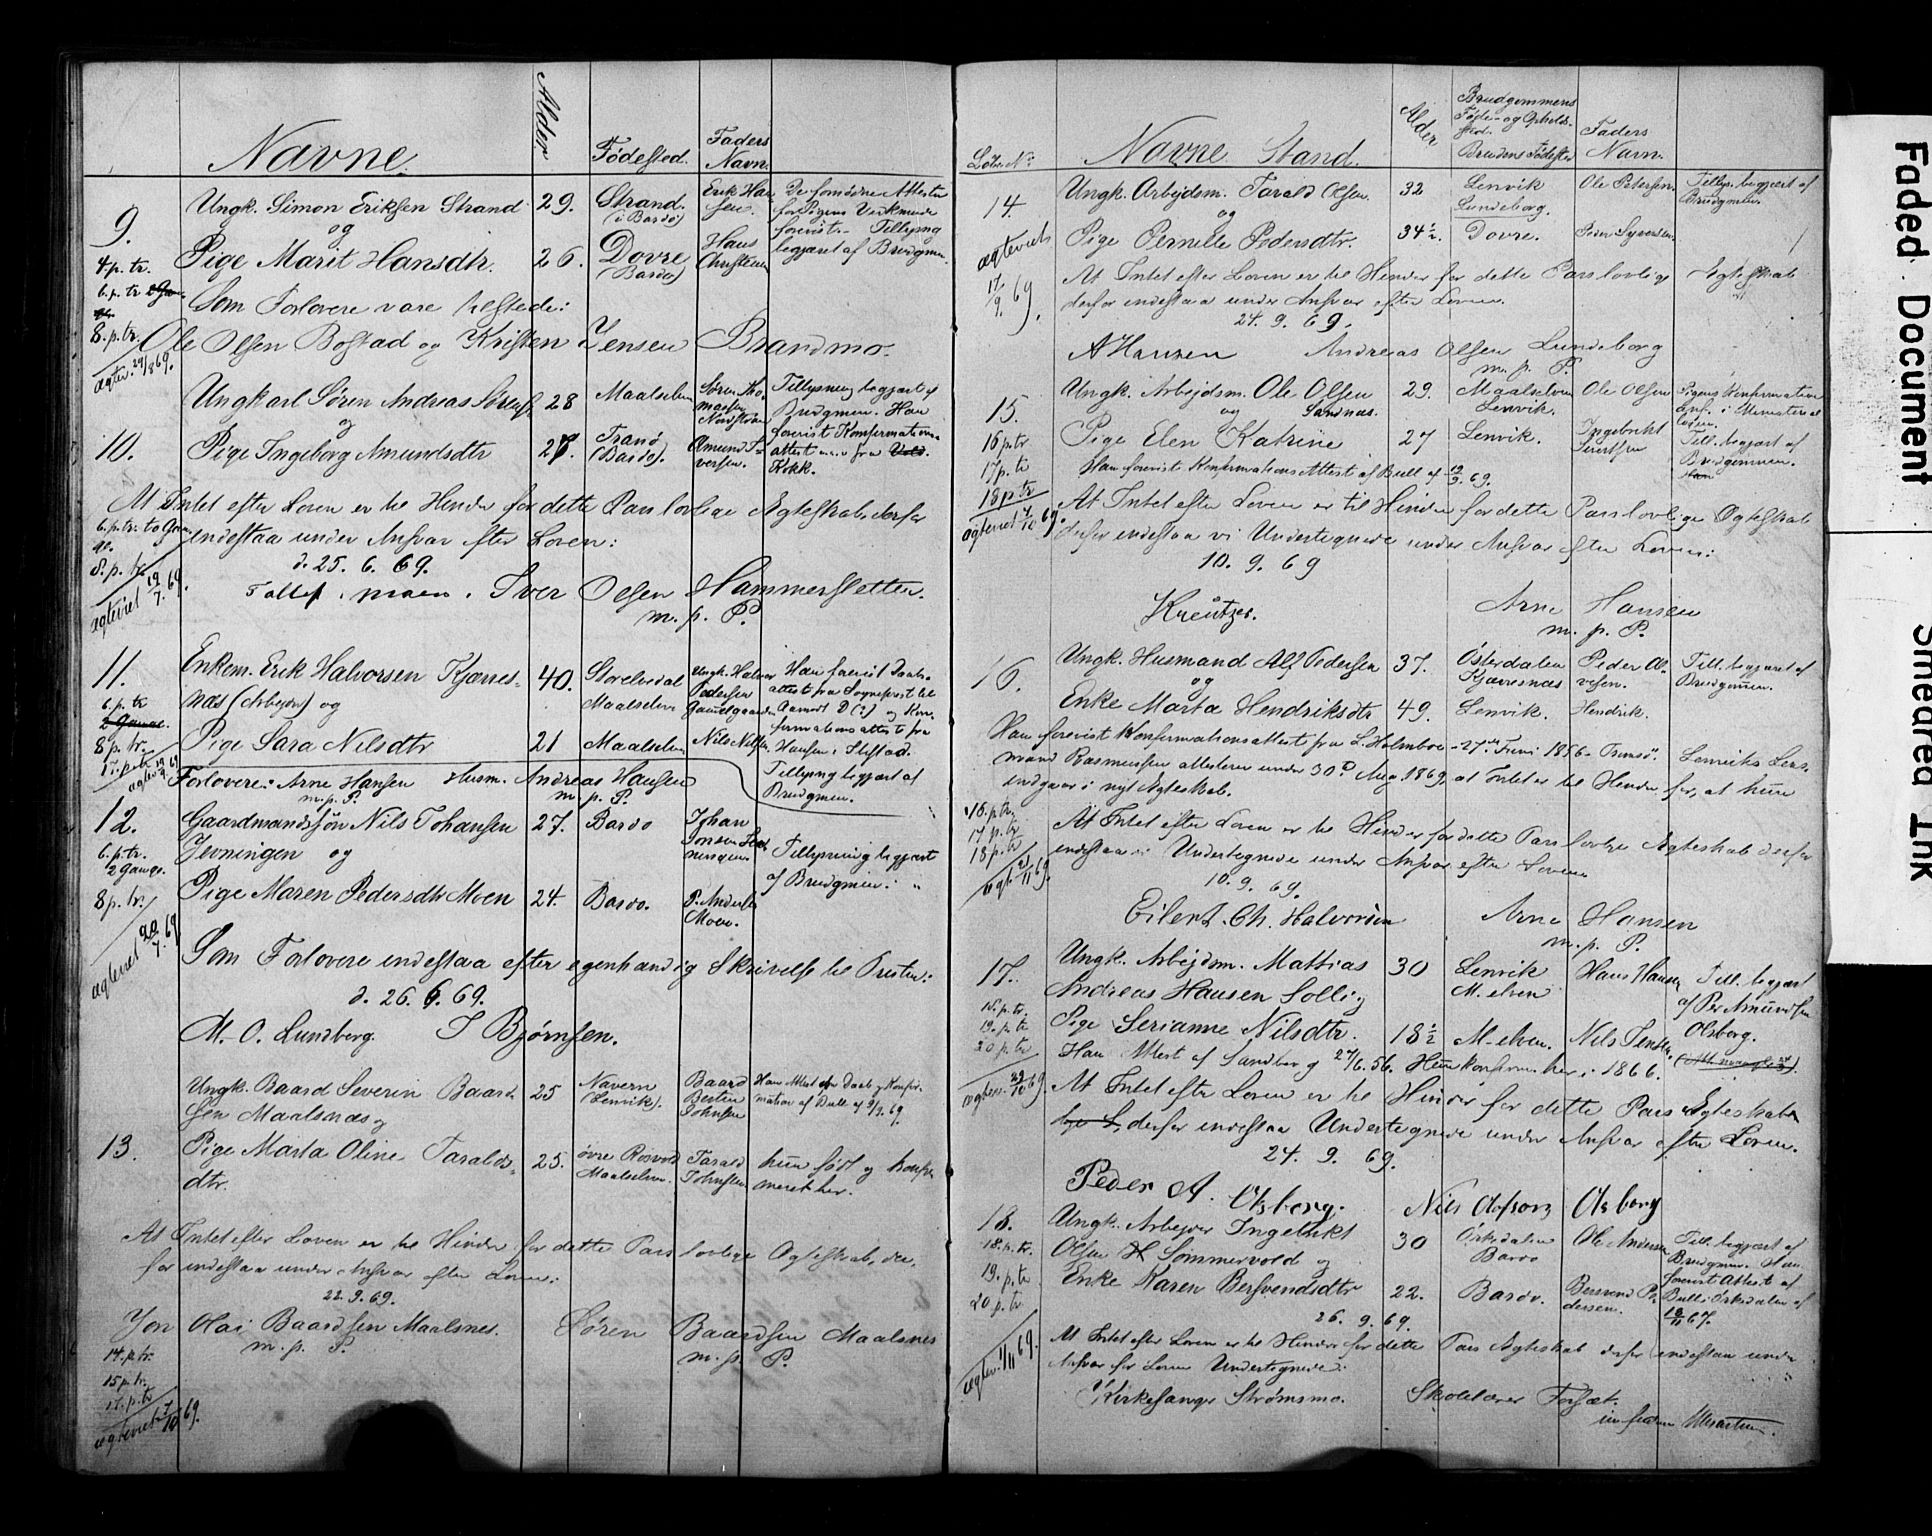 Navne.
Alder
Fødested.
Faders Navn.
9.
Ungk. Simon Eriksen Strand
29.
Strand.
(i Bardo)
Erik Han
sen.
De fornødne Attester
for Pigens Vedkmde
forevist. Tillysng
begjæret af Brudgmen.
og
Pige Marit Hansdtr.
26.
Dovre
(Bardo)
Hans
Christensen
4 p. tr.
6. p. tr.
8. p. tr.
Som Forlovere vare tilstede:
Ole Olsen Bostad og Kristen Jensen Brandmo.
ægtev. 29/8 69.
10.
Ungkarl Søren Andreas Sørens.
28
Maalselven
Søren Tho
massen
Nordstrøm
Tillysning begjært af
Brudgmen. Han
forevist Konfirmations
attest fra
Kokk.
og
Pige Ingeborg Amundsdtr
27.
Tranø
(Bardo).
Amund I-
versen.
At Intet efter Loven er til Hinder for dette Pars lovlige Ægteskab, derfor
indestaa under Ansvar efter Loven:
d. 25. 6. 69.
6. p. tr.
8. p. tr.
ægteviet 19/7. 69.
Iver Olsen Hammersletten.
m. p. P.
11.
Enkem. Erik Halvorsen Kjærres-
næs (Arbejdsm) og
40.
Storelvedal
Maalselven
Ungk. Halvor
Pedersen
Gammelgaarden
Han forevist Daabs-
attest fra Sogneprest til
Aamodt
firmationsattest fra
Hansen i Stiftad.
Pige Sara Nilsdtr
21
Maalselven
Nils Nilsen
6. p. tr
2 Gange.
8 p. tr.
Forlovere: Arne Hansen
m. p. P.
Husm. Andreas Hansen
m. p. P.
Tillysng begjært af
Brudgmen.
12.
Gaardmandssøn Nils Johansen
Jevningen og
27.
Bardo
Johan
Jonsen Jev
ningen
Tillysning begjært
af Brudgmen.
6. p. tr.
2 Gange.
Pige Maren Pedersdtr Moen
24.
Bardo.
P. Anders.
Moen.
8 p. tr.
ægteviet 20/7. 69
Som Forlovere indestaa efter egenhændig Skrivelse til Presten:
d. 26. 6. 69.
M. O. Lundberg. I Bjørnsen.
Ungk. Baard Severin Baard
sen Maalsnæs og
25
Navern
(Lenvik).
Baard
Berten
Johnsen
Han Attest om Daab og Konfir
mation af Bull af 9/9. 69.
13.
Pige Marta Oline Taralds-
dtr.
25.
øvre Rosvold
Maalselven.
Tarald
Johnsen
hun født og konfir
meret her.
At Intet efter Loven er til Hinder for dette Pars lovlige Ægteskab, der
for indestaa under Ansvar efter Loven:
22. 9. 69.
Jon Olai Baardsen Maalsnes.
m. p. P.
Søren Baardsen Maalsnes
m. p. P.
14. p. tr.
15 p. tr.
17. p. tr
ægteviet 7/10 69.
Løbe No
Navne Stand.
Alder
Brudgommens
Føde- og Opholds-
sted.
Brudens Fødested
Faders
Navn.
14.
Ungk. Arbejdsm. Tarald Olsen.
32
Lenvik
Lundeborg.
Ole Petersen.
Tillys. begjært af
Brudgmen.
og
Pige Pernille Pedersdtr.
34½.
Dovre.
Peder Syversen.
ægteviet
17/9. 69.
At Intet efter Loven er til Hinder for dette Pars lovlige Ægteskab
derfor indestaa under Ansvar efter Loven.
24. 9. 69.
A Hansen
Andreas Olsen Lundeborg
m. p. P.
15.
Ungk. Arbejdsm. Ole Olsen
Sandnæs.
29.
Maalselven
Lenvik.
Ole Olsen
Pigens Konfirmation
Till. begjært af
Brudgommen.
og
Pige Elen Katrine
27
Lenvik.
Ingebrikt
Sivertsen
16 p. tr
17 p. tr
18 p. tr
Han forevist Konfirmations Attest af Bull af 12/9. 69.
At Intet efter Loven er til Hinder for dette Pars lovlige Ægteskab
derfor indestaa vi Undertegnede under Ansvar efter Loven:
ægteviet 7/10 69.
10. 9. 69
Kreutzer.
Arne Hansen
m. p. P.
16.
Ungk. Husmand Alf Pedersen
37.
Østerdalen
Kjærresnæs
Peder Ol-
vesen.
Till. begjæret af
Brudgmen.
og
Enke Marta Hendriksdtr
49.
Lenvik.
Hendrik.
Han forevist Konfirmationsattest fra L. Holmboe - 27de Juni 1856 - Tromsø. Lenviks Lens-
mand Rasmussen attesterer under 30. Aug. 1869, at Intet er til Hinder for, at hun
indgaar i nyt Ægteskab.
16. p. tr.
17 p. tr
18 p. tr
At Intet efter Loven er til Hinder for dette Pars lovlige Ægteskab derfor
indestaa vi Undertegnede under Ansvar efter Loven
10. 9. 69.
Eilert. Ch. Halvorsen
Arne Hansen
m. p. P.
17.
Ungk. Arbejdsm. Mattias
Andreas Hansen Solli og
30
Lenvik
M. elven
Hans Hansen
Till. begjært
af Per Amundsen
Olsborg.
Pige Serianne Nilsdtr.
18½
M-elven.
Nils Jensen
19. p. tr
20 p. tr
Han Attest af Sandberg 27/6. 56. Hun konfirm. her i 1866.
At Intet efter Loven er til Hinder for dette Pars Ægteskab
derfor indestaa Undertegnede under Ansvar efter Loven.
24. 9. 69.
Peder A. Olsborg.
Nils Olafson Olsborg
18.
Ungk. Arbejder Ingebrikt
Olsen Sommervold og
30
Orkdalen
Bardo
Ole Andersen
Till. begjært af
Brudgmen. Han
forevist Attest af
Bull i Orkdalen af
Enke Karen Bersvendsdtr
22.
Bardo.
Bersvend Pe-
dersen.
18. p. tr.
19. p. tr
20 p. tr.
26. 9. 69.
At Intet efter Loven er til Hinder for dette Pars Ægteskab derfor indestaa under
Ansvar for Loven Undertegnede:
ægtev. 1/11 69.
Kirkesanger Strømsmo.
Skolelærer Forsæt.
Faded Document
Smeared Ink